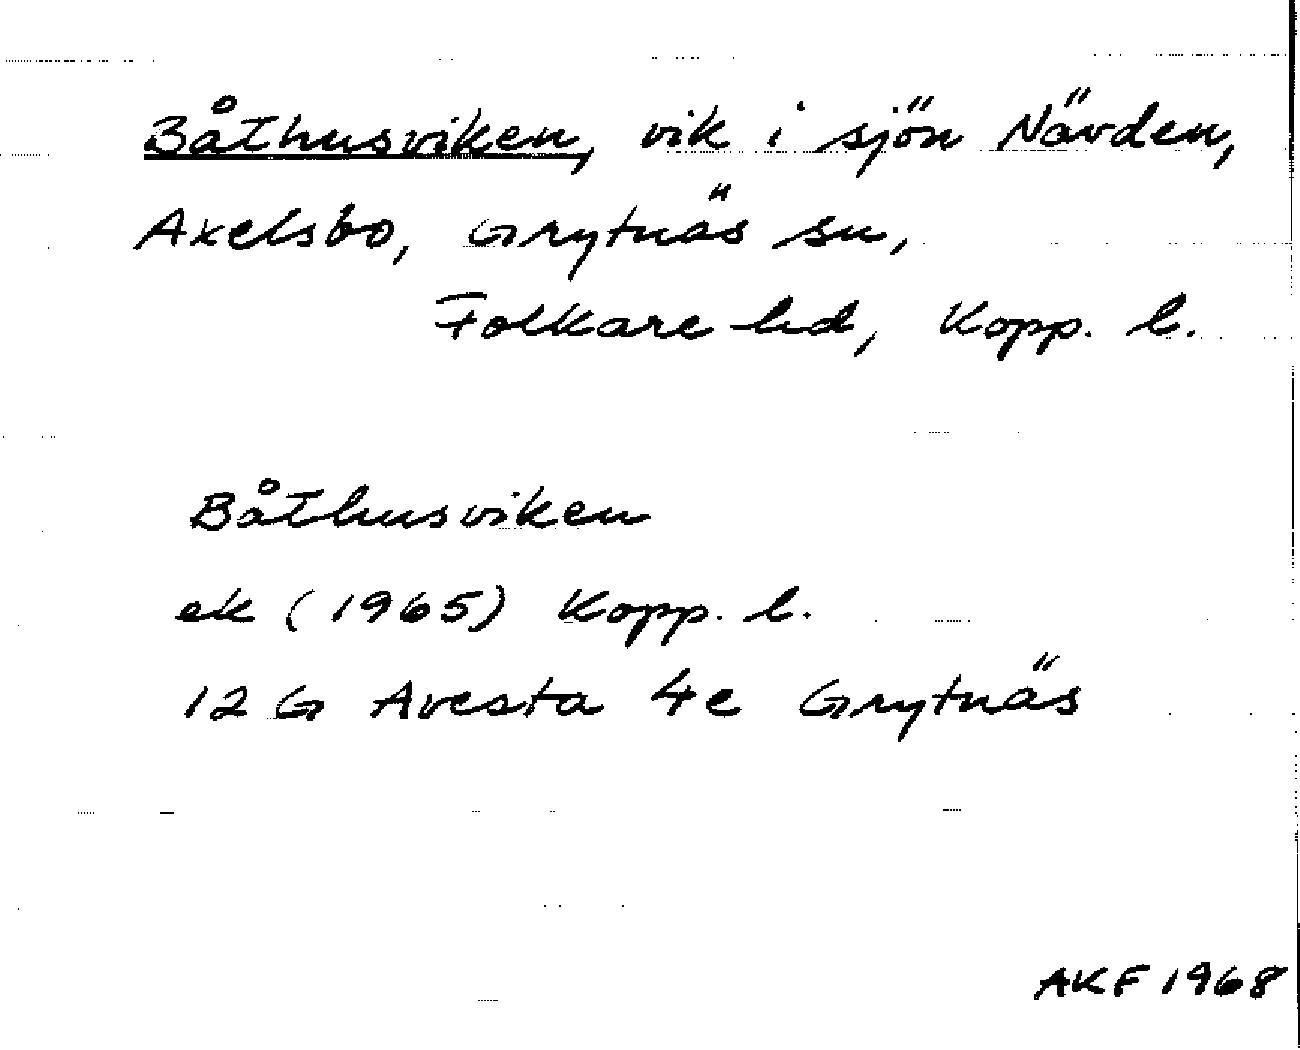 Båthusviken, vik i sjön Nävden,
Axelsbo, Grytnäs sn,
Folkare hd, Kopp. l.
Båthusviken
ek (1965) Kopp. l.
12 G Avesta 4e Grytnäs
AKF 1968